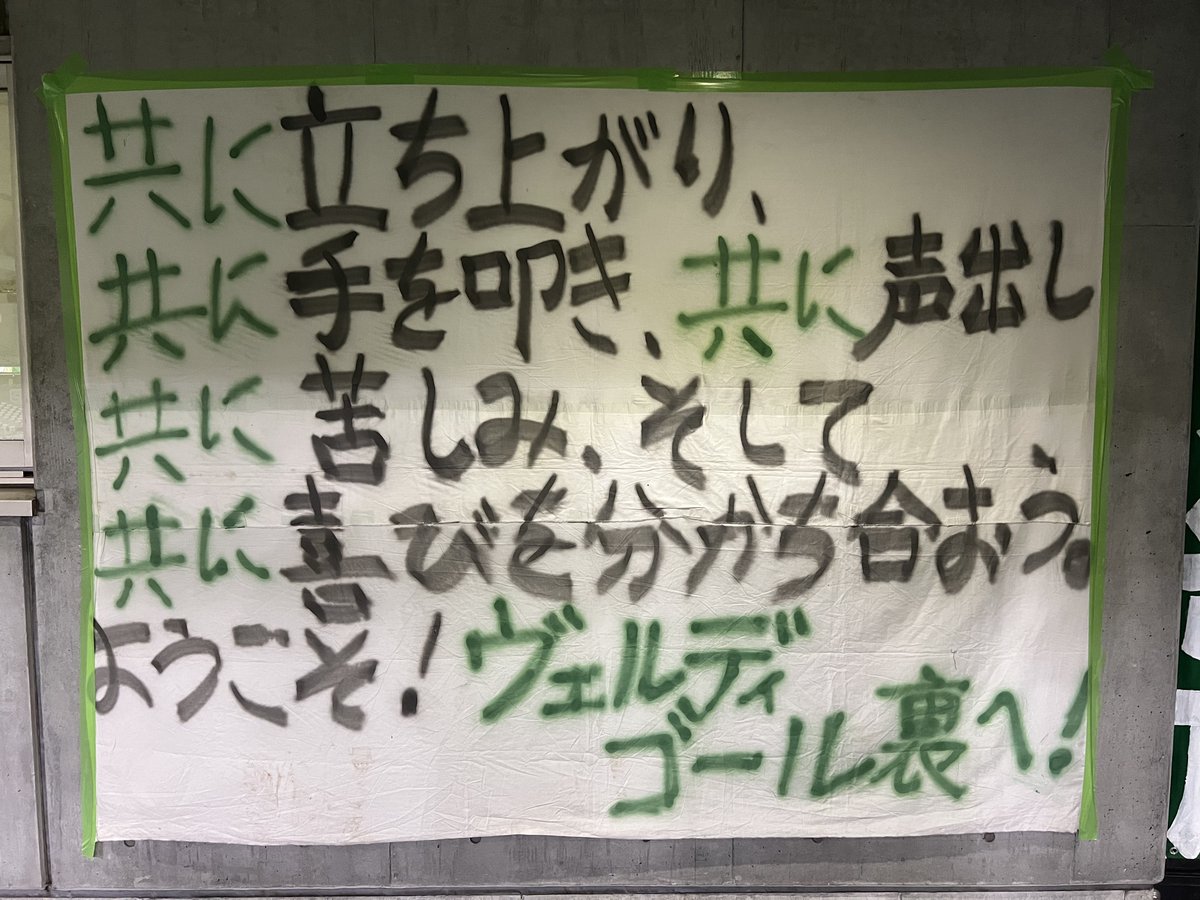 共に立ち上がり、
共に手を叩き、共に声出し
共に苦しみ、そして
共に喜びを分かち合おう。
ようこそ！ヴェルディ
ゴール裏へ！